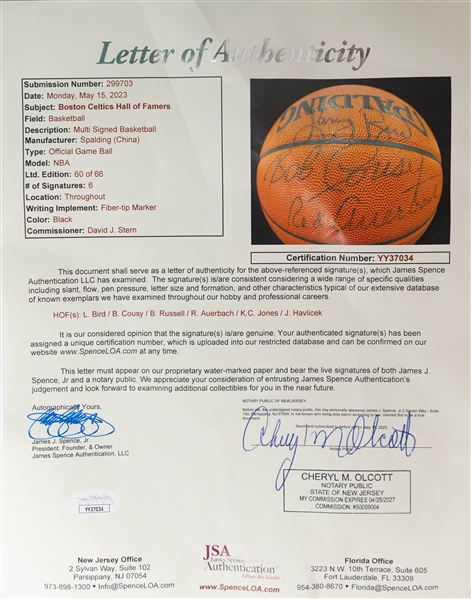 Letter of Authenticity
Submission Number: 299703
Date: Monday, May 15, 2023
Subject: Boston Celtics Hall of Famers
Field: Basketball
Description: Multi Signed Basketball
Manufacturer: Spalding (China)
Type: Official Game Ball
Model: NBA
Ltd. Edition: 60 of 66
# of Signatures: 6
Location: Throughout
Writing Implement: Fiber-tip Marker
Color: Black
Commissioner: David J. Stern
SPALDING
Larry Bird
Bob Cousy
Red Auerbach
Certification Number: YY37034
This document shall serve as a letter of authenticity for the above-referenced signature(s), which James Spence
Authentication LLC has examined. The signature(s) is/are consistent considering a wide range of specific qualities
including slant, flow, pen pressure, letter size and formation, and other characteristics typical of our extensive database
of known exemplars we have examined throughout our hobby and professional careers.
HOF(s): L. Bird / B. Cousy / B. Russell / R. Auerbach / K.C. Jones / J. Havlicek
It is our considered opinion that the signature(s) is/are genuine. Your authenticated signature(s) has been
assigned a unique certification number, which is uploaded into our restricted database and can be confirmed on our
website www.SpenceLOA.com at any time.
This letter must appear on our proprietary water-marked paper and bear the live signatures of both James J.
Spence, Jr and a notary public. We appreciate your consideration of entrusting James Spence Authentication's
judgement and look forward to examining additional collectibles for you in the near future.
Autographically Yours,
James J. Spence, Jr.
President, Founder, & Owner
James Spence Authentication, LLC
NOTARY PUBLIC OF NEW JERSEY
Cheryl M Olcott
CHERYL M. OLCOTT
NOTARY PUBLIC
STATE OF NEW JERSEY
MY COMMISSION EXPIRES 04/25/2027
COMMISSION: #50059004
YY37034
New Jersey Office
2 Sylvan Way, Suite 102
Parsippany, NJ 07054
973-898-1300 • Info@SpenceLOA.com
JSA
James Spence
Authentication
follow the leader
www.SpenceLOA.com
Florida Office
3223 N.W. 10th Terrace, Suite 605
Fort Lauderdale, FL 33309
954-380-8670 • Florida@SpenceLOA.com